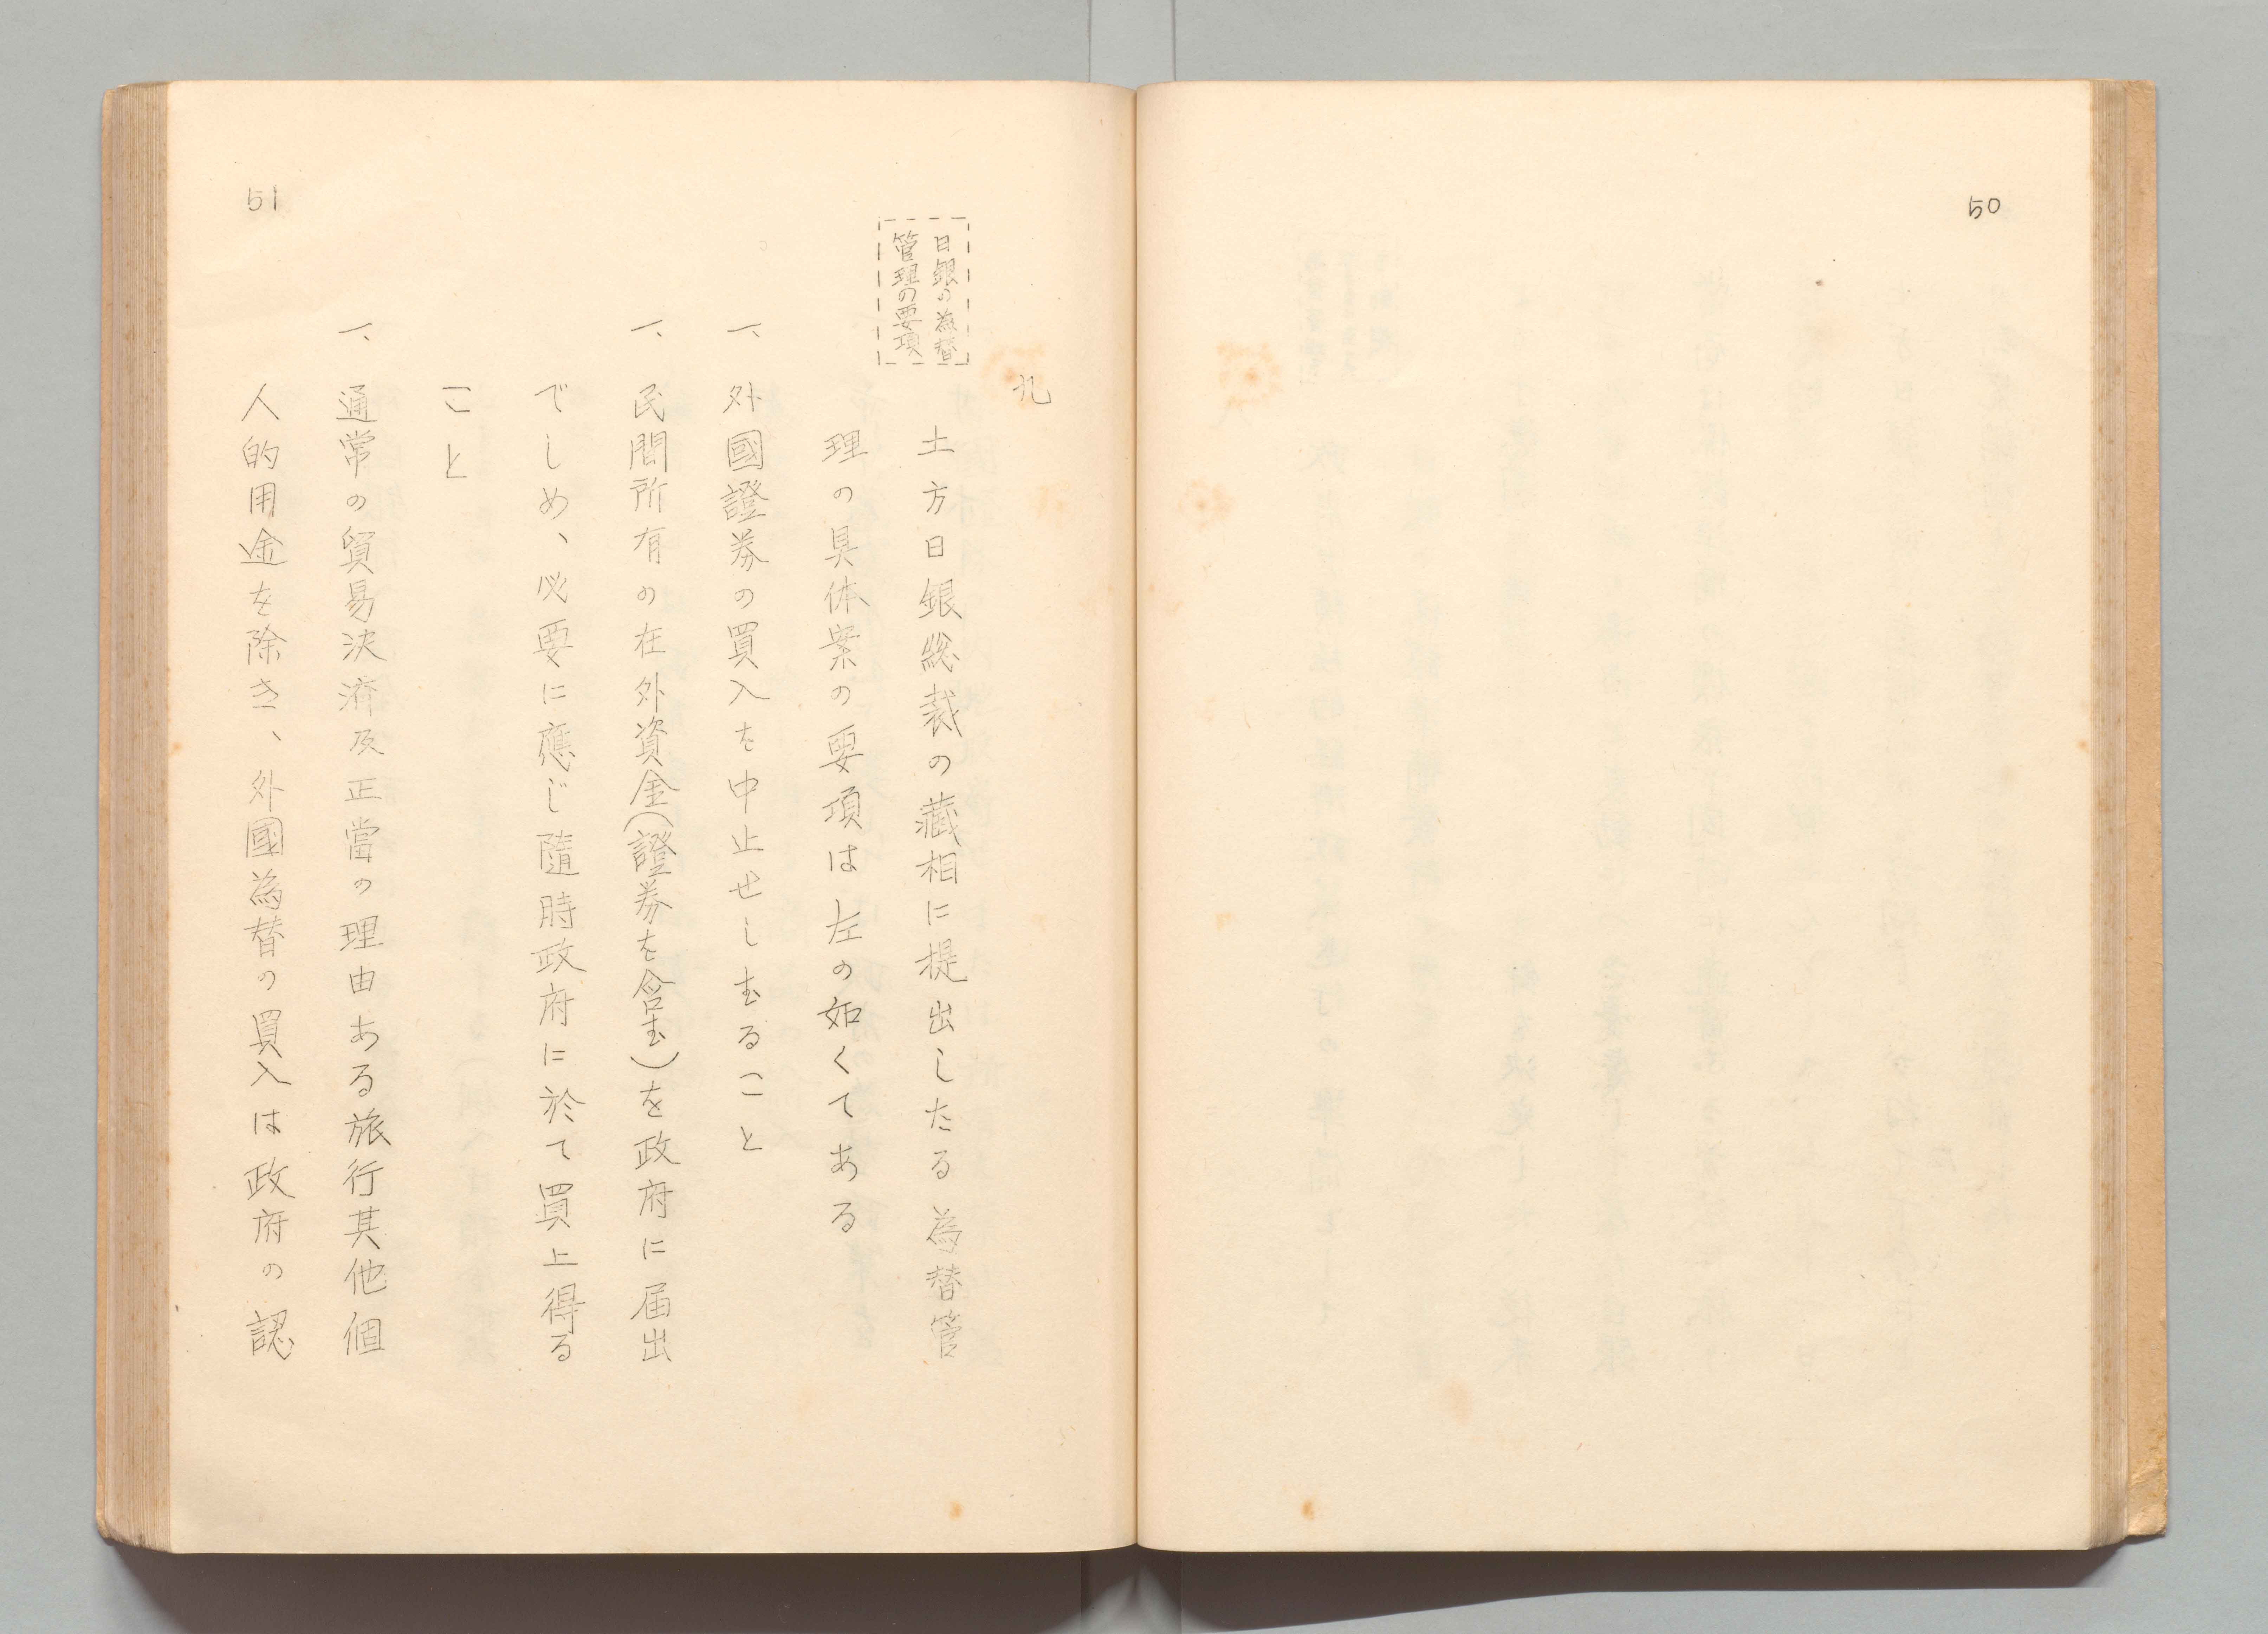 50
九
日銀の為替
管理の要項
土方日銀総裁の藏相に提出したる為替管
理の具体案の要項は左の如くてある
一、外國證券の買入を中止せしむること
一、民間所有の在外資金(證券を含む)を政府に届出
でしめ、必要に應じ隨時政府に於て買上得る
こと
一、通常の貿易決済及正當の理由ある旅行其他個
人的用途を除き、外國為替の買入は政府の認
51